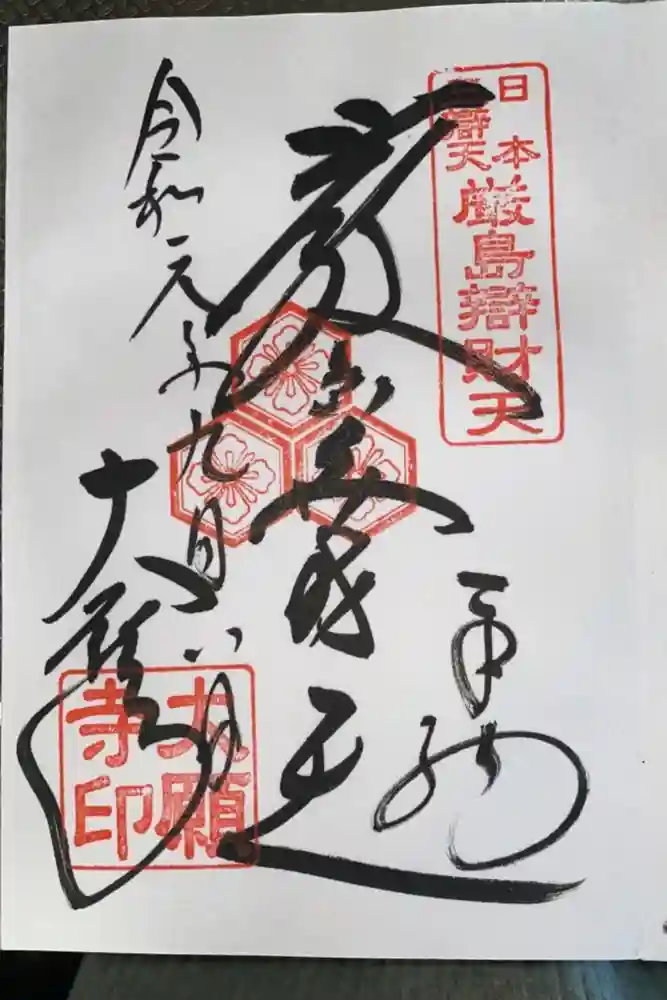 奉拝
日本
三辯天
厳島辯財天
大願
寺印
令和元年九月八日
大願寺